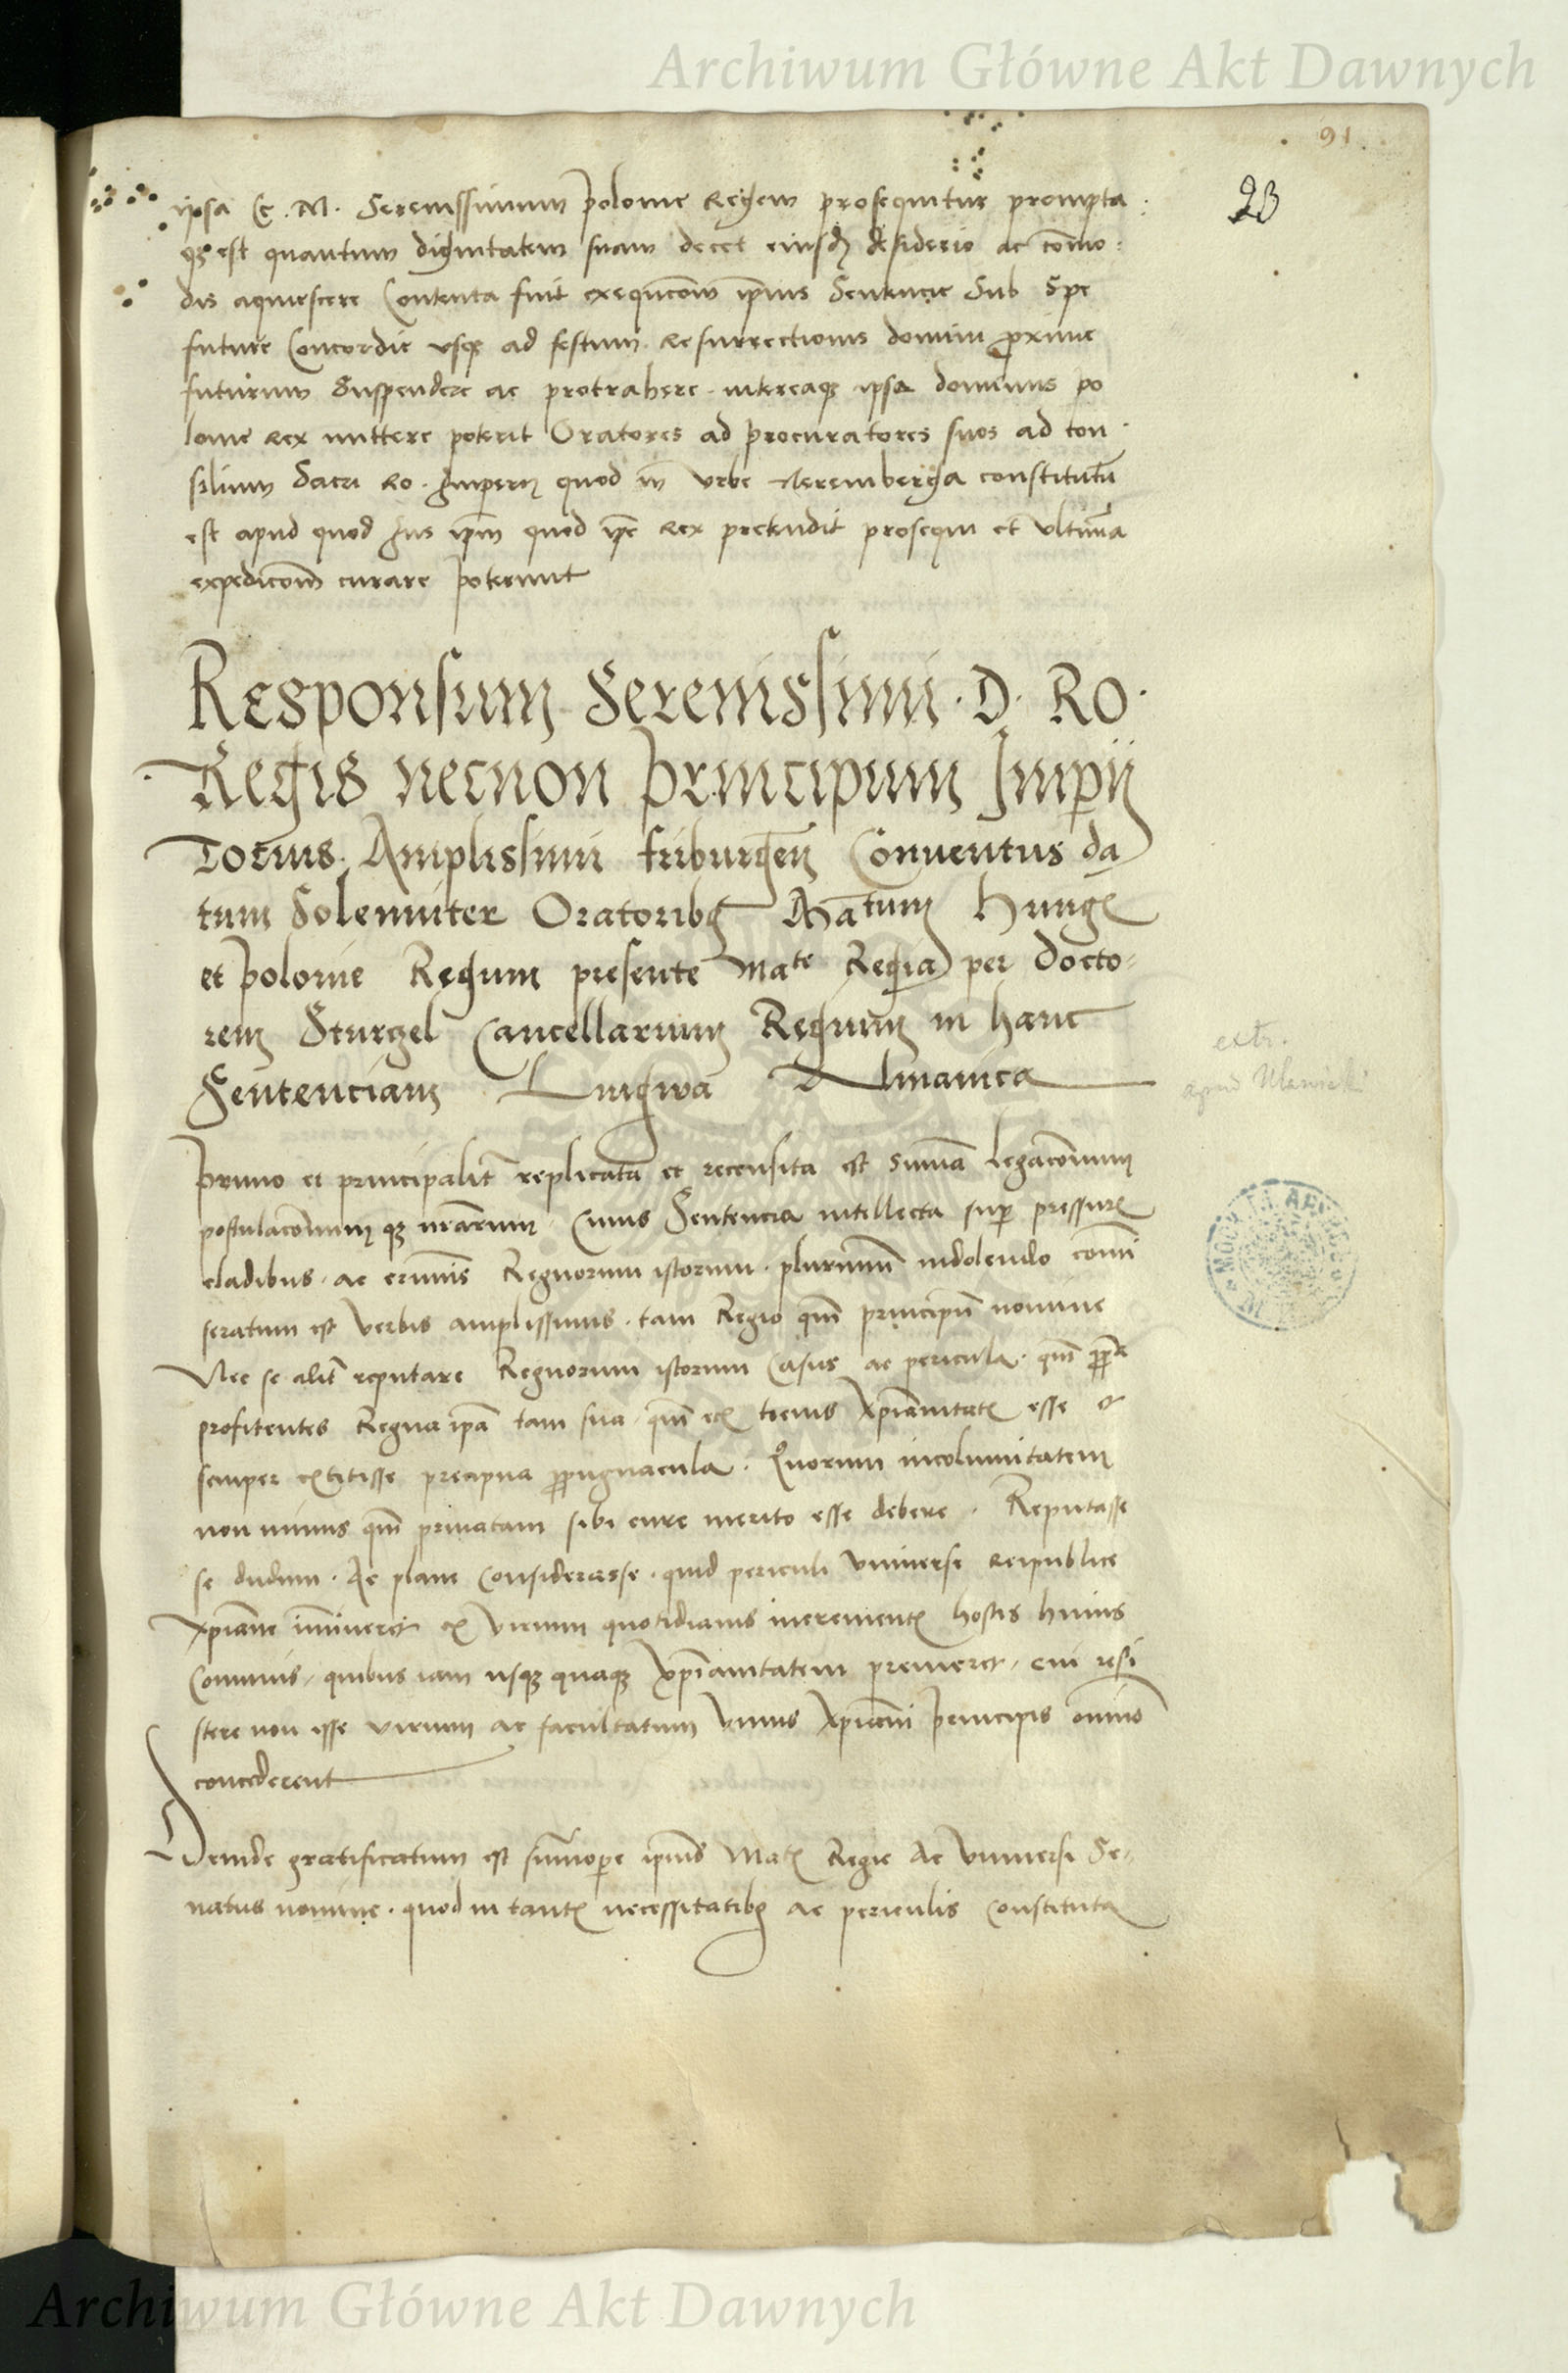 Archiwum Główne Akt Dawnych
91
23
ipsa C. M. Serenissimum Polonie Regem prosequitur prompta
qꝫ est quantum dignitatem suam decet eiusdꝫ desiderio ac com̄o:
dis aquiescere Contenta fuit exequcōm ip̄ius Sentencie Sub Spe
future Concordie vsqꝫ ad festum Resurrectionis domini proxime
futurum Suspendere ac protrahere. intereaqꝫ ipse dominus po
lonie Rex mittere poterit Oratores ad procuratores suos ad con
silium Sacri Ro. Imperij quod in Vrbe Neremberga constitutū
est apud quod Ius ip̄m quod ip̄e Rex pretendit prosequi et vltimā
expedicōm curare poterunt
Responsum Serenissimi. D. Ro.
Regis necnon principum Imp̄ij
Totius. Amplissimi friburgen̄ Conuentus da
tum Solemniter Oratoribꝫ Ma͞tum Hungꝫ
et polonie Regum presente Mate Regia per docto-
rem Sturczel Cancellarium Regium in hanc
Sentenciam Lingwa Almanica
extr.
apud
Primo et principalit̄ replicata et recensita est Sum̄a Legacōnum
postulacōnum qꝫ nr̄arum. Cuius Sentencia intellecta sup̄ pressurꝭ
cladibus. ac erumnis Regnorum istorum. plurimum indolendo com̄i
seratum est verbis amplissimis. tam Regio qm̄ principū nomine
Nec se alit̄ reputare Regnorum istorum Casus ac pericula. qm̄ ꝓpꝛia
profitentes Regna ip̄a tam sua qm̄ ecꝫ tocius xp̄ianitatꝭ esse et
semper extitisse precipua ꝓpugnacula. Quorum incolumitatem
non minus qm̄ priuatam sibi cure merito esse debere. Reputasse
se dudum. Ac plane Considerasse. quid periculi Vniuerse Reipublice
xp̄iane im̄ineret ex virium quotidianis incrementꝭ hostis huius
Communis. quibus iam usqꝫ quaqꝫ xp̄ianitatem premeret. cui resi
stere non esse virium ac facultatum Vnius xp̄iani principis om̄ino
concederent
Deinde gratificatum est sum̄opere ip̄ius Matꝭ Regie Ac Vniuersi Se-
natus nomine. quod in tantꝭ necessitatibꝫ ac periculis Constituta
Archiwum Główne Akt Dawnych